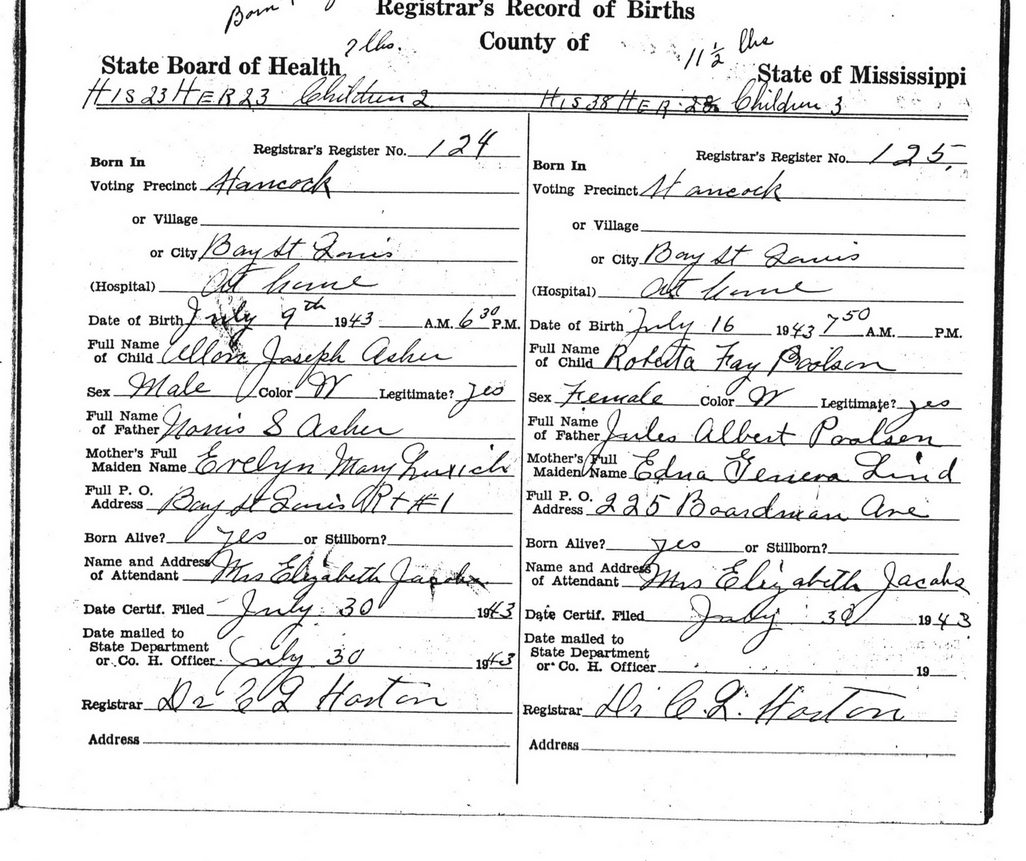 Born
Registrar's Record of Births
7 lbs.
County of
11½ lbs
State Board of Health
State of Mississippi
HIS 23 HER 23 Children 2
HIS 38 HER 28 Children 3
Registrar's Register No. 124
Born In
Voting Precinct Hancock
or Village
or City Bay St Louis
(Hospital) At home
Date of Birth July 9th 1943 A.M. 6 30 P.M.
Full Name
of Child Joseph Asher
Sex Male Color W Legitimate? yes
Full Name
of Father Norris S Asher
Mother's Full
Maiden Name Evelyn Mary
Full P. O.
Address Bay St Louis Rt #1
Born Alive? yes or Stillborn?
Name and Address
of Attendant Mrs Elizabeth Jacobs
Date Certif. Filed July 30 1943
Date mailed to
State Department
or Co. H. Officer July 30 1943
Registrar Dr C L Horton
Address
Registrar's Register No. 125.
Born In
Voting Precinct Hancock
or Village
or City Bay St Louis
(Hospital) At home
Date of Birth July 16 1943 7 50 A.M. P.M.
Full Name
of Child Roberta Fay Poolson
Sex Female Color W Legitimate? yes
Full Name
of Father Jules Albert Poolson
Mother's Full
Maiden Name Edna Geneva Lind
Full P. O.
Address 225 Boardman Ave
Born Alive? yes or Stillborn?
Name and Address
of Attendant Mrs Elizabeth Jacobs
Date Certif. Filed July 30 1943
Date mailed to
State Department
or Co. H. Officer 19
Registrar Dr C. L. Horton
Address